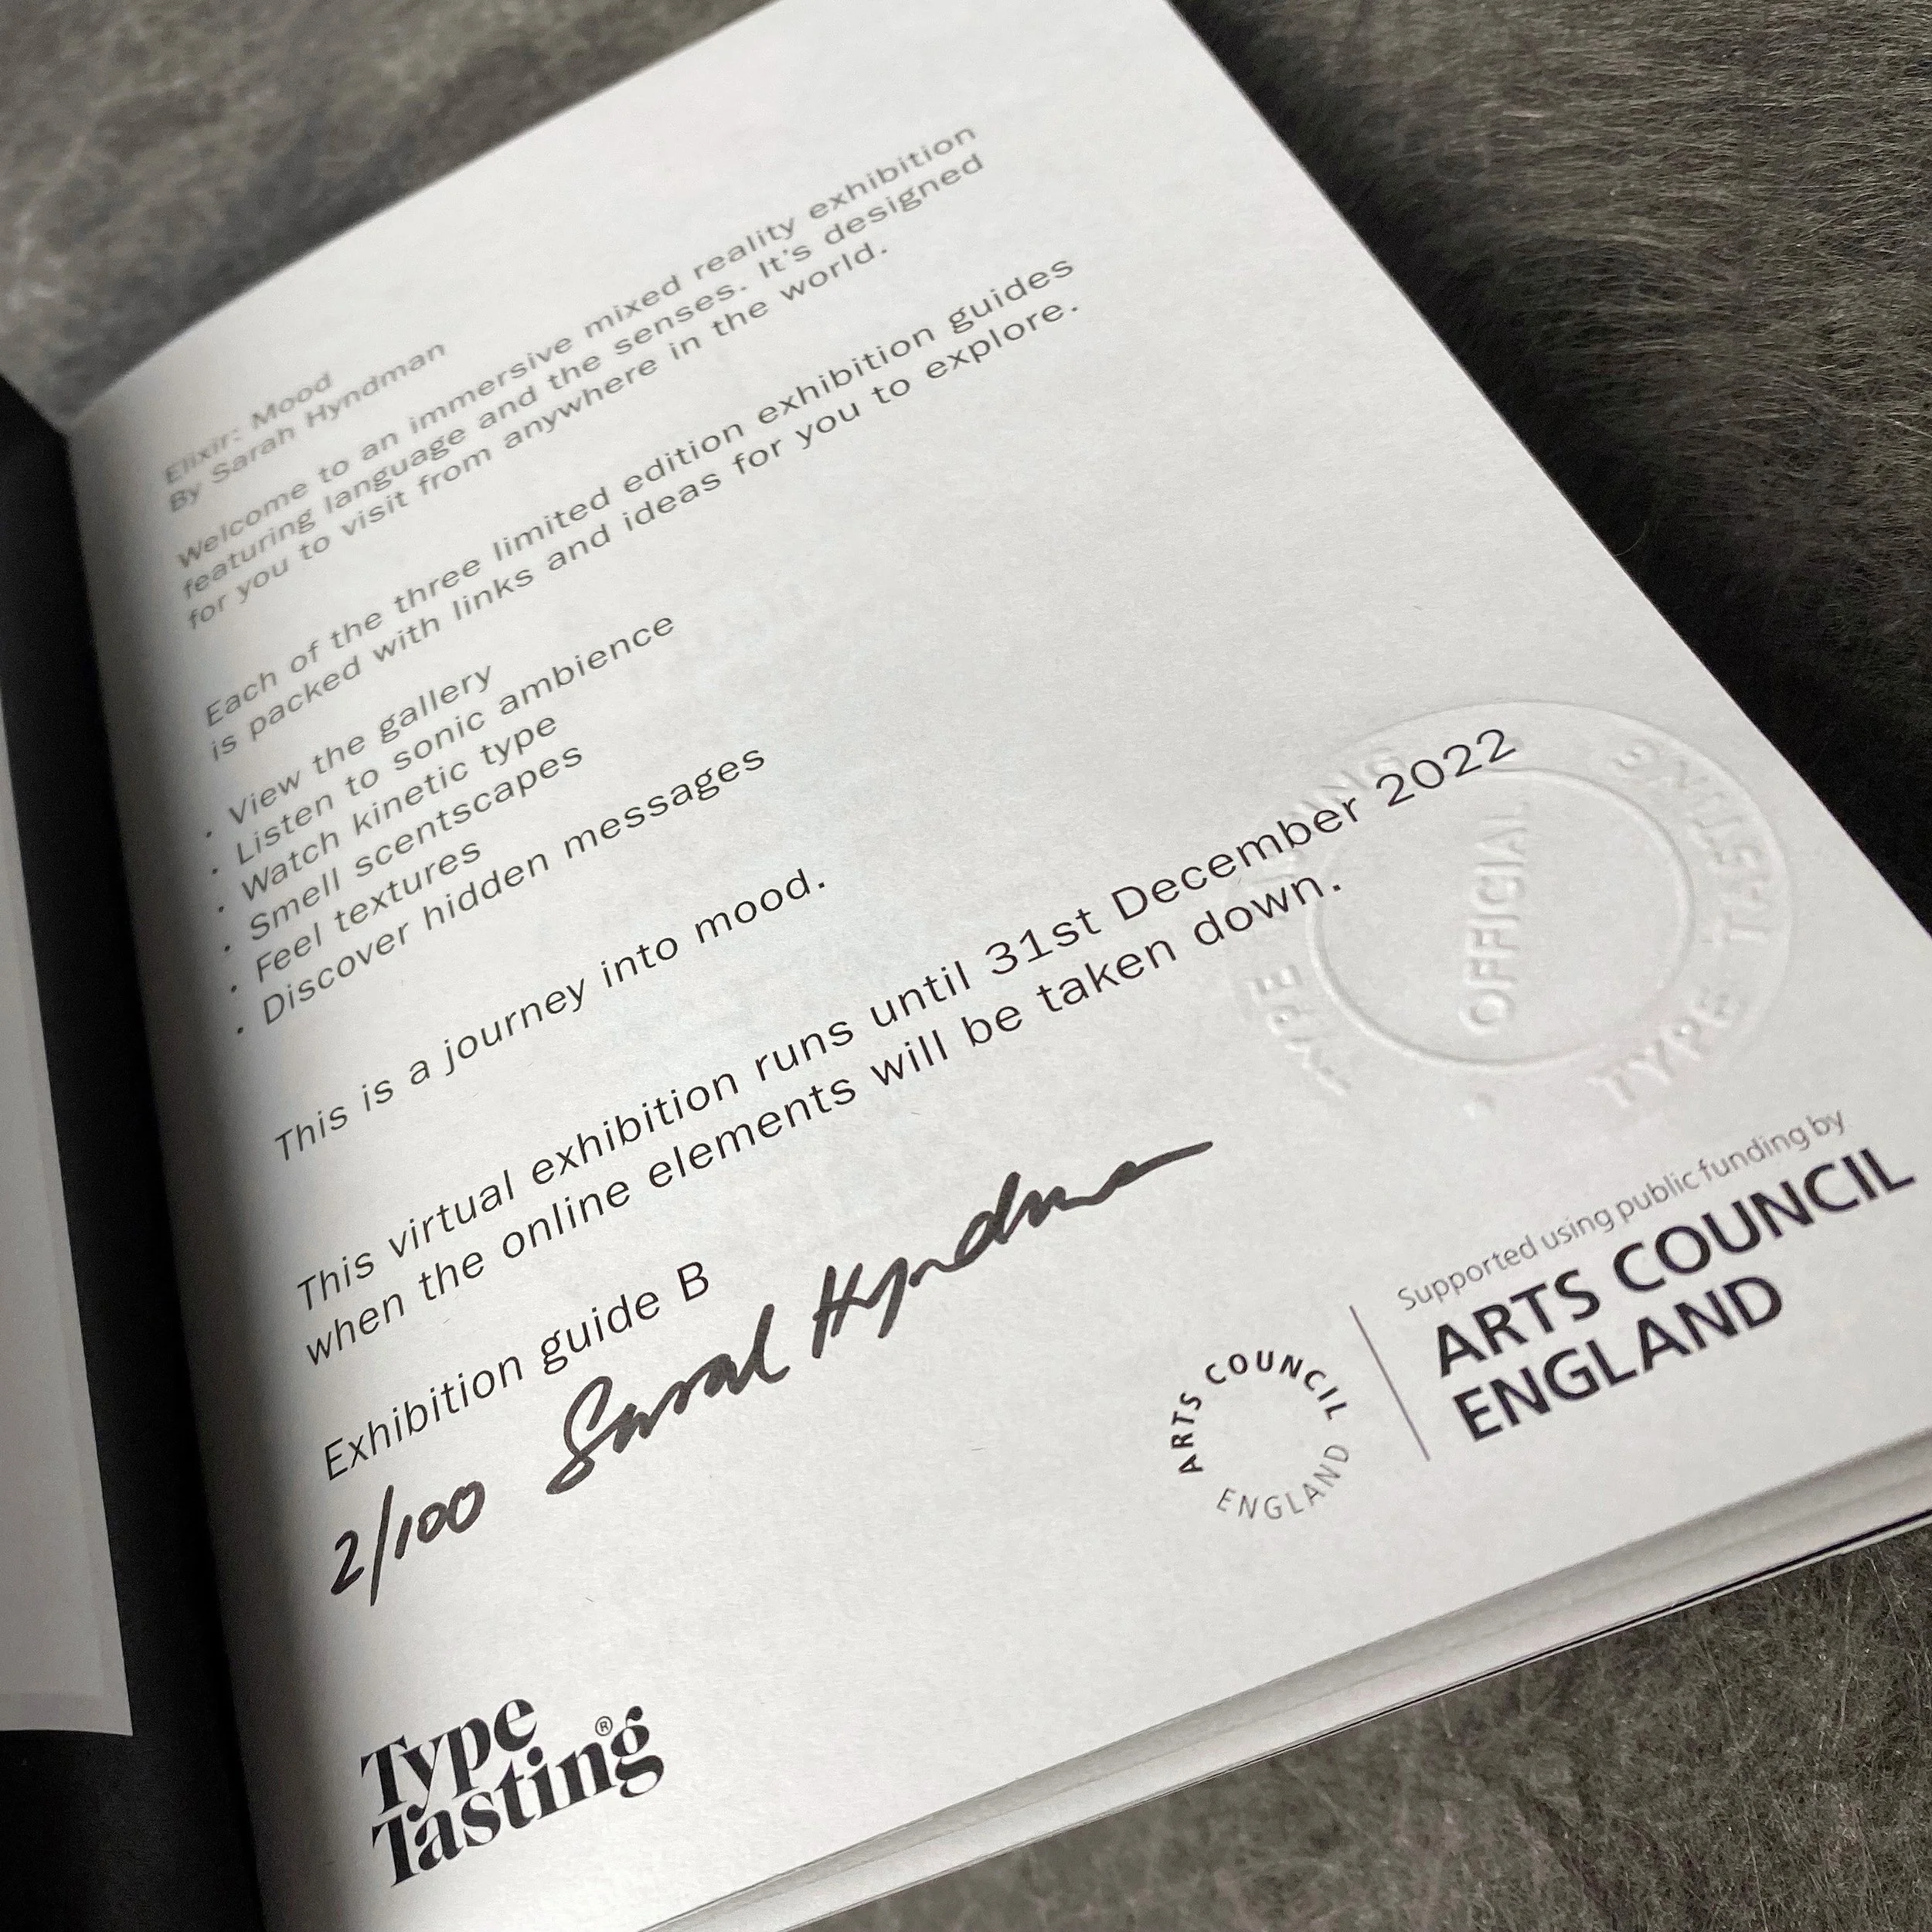 Elixir: Mood
By Sarah Hyndman
Welcome to an immersive mixed reality exhibition
featuring language and the senses. It's designed
for you to visit from anywhere in the world.
Each of the three limited edition exhibition guides
is packed with links and ideas for you to explore.
· View the gallery
· Listen to sonic ambience
· Watch kinetic type
· Smell scentscapes
· Feel textures
· Discover hidden messages
This is a journey into mood.
This virtual exhibition runs until 31st December 2022
when the online elements will be taken down.
Exhibition guide B
2/100 Sarah Hyndman
TYPE TASTING
OFFICIAL
TYPE TASTING
Supported using public funding by
ARTS COUNCIL
ENGLAND
ARTS COUNCIL
ENGLAND
Type
Tasting®